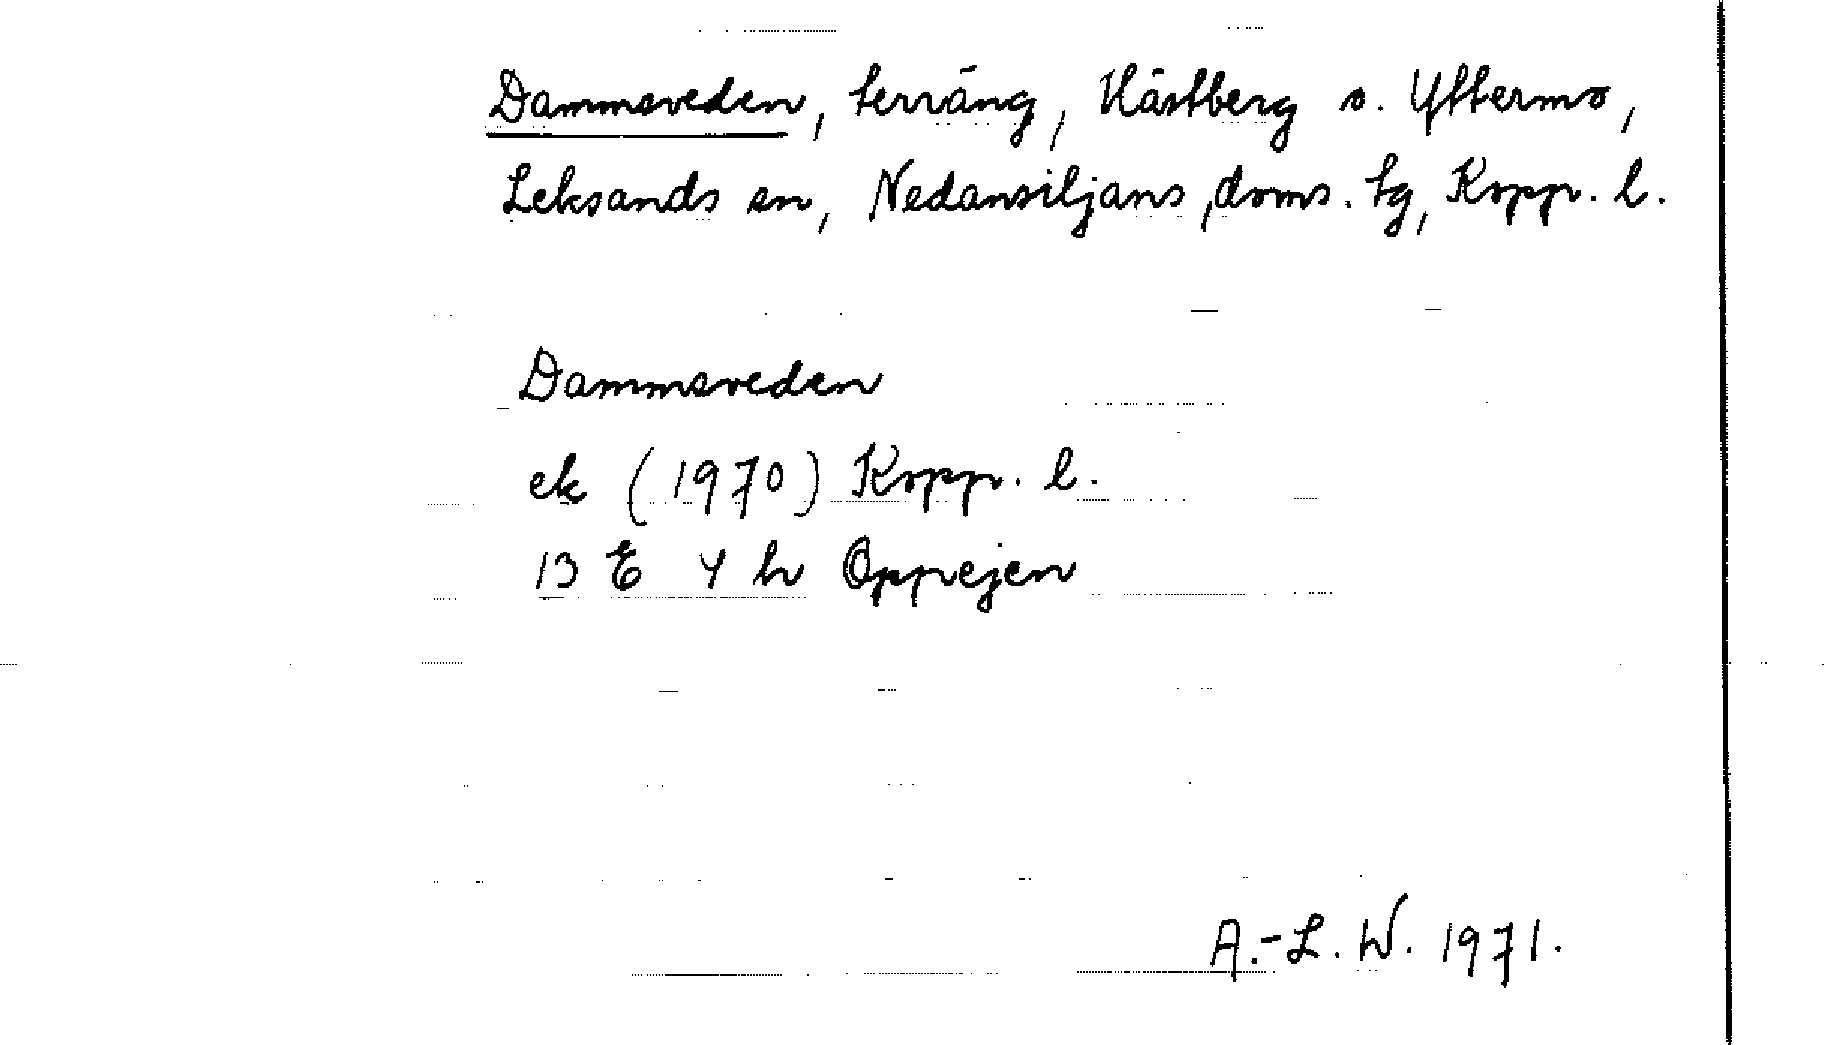 Dammsveden, terräng, Hästberg o. Yttermo,
Leksands sn, Nedansiljans doms. tg, Kopp. l.
Dammsveden
ek (1970) Kopp. l.
13 E 4 h Oppejen
A.-L. W. 1971.